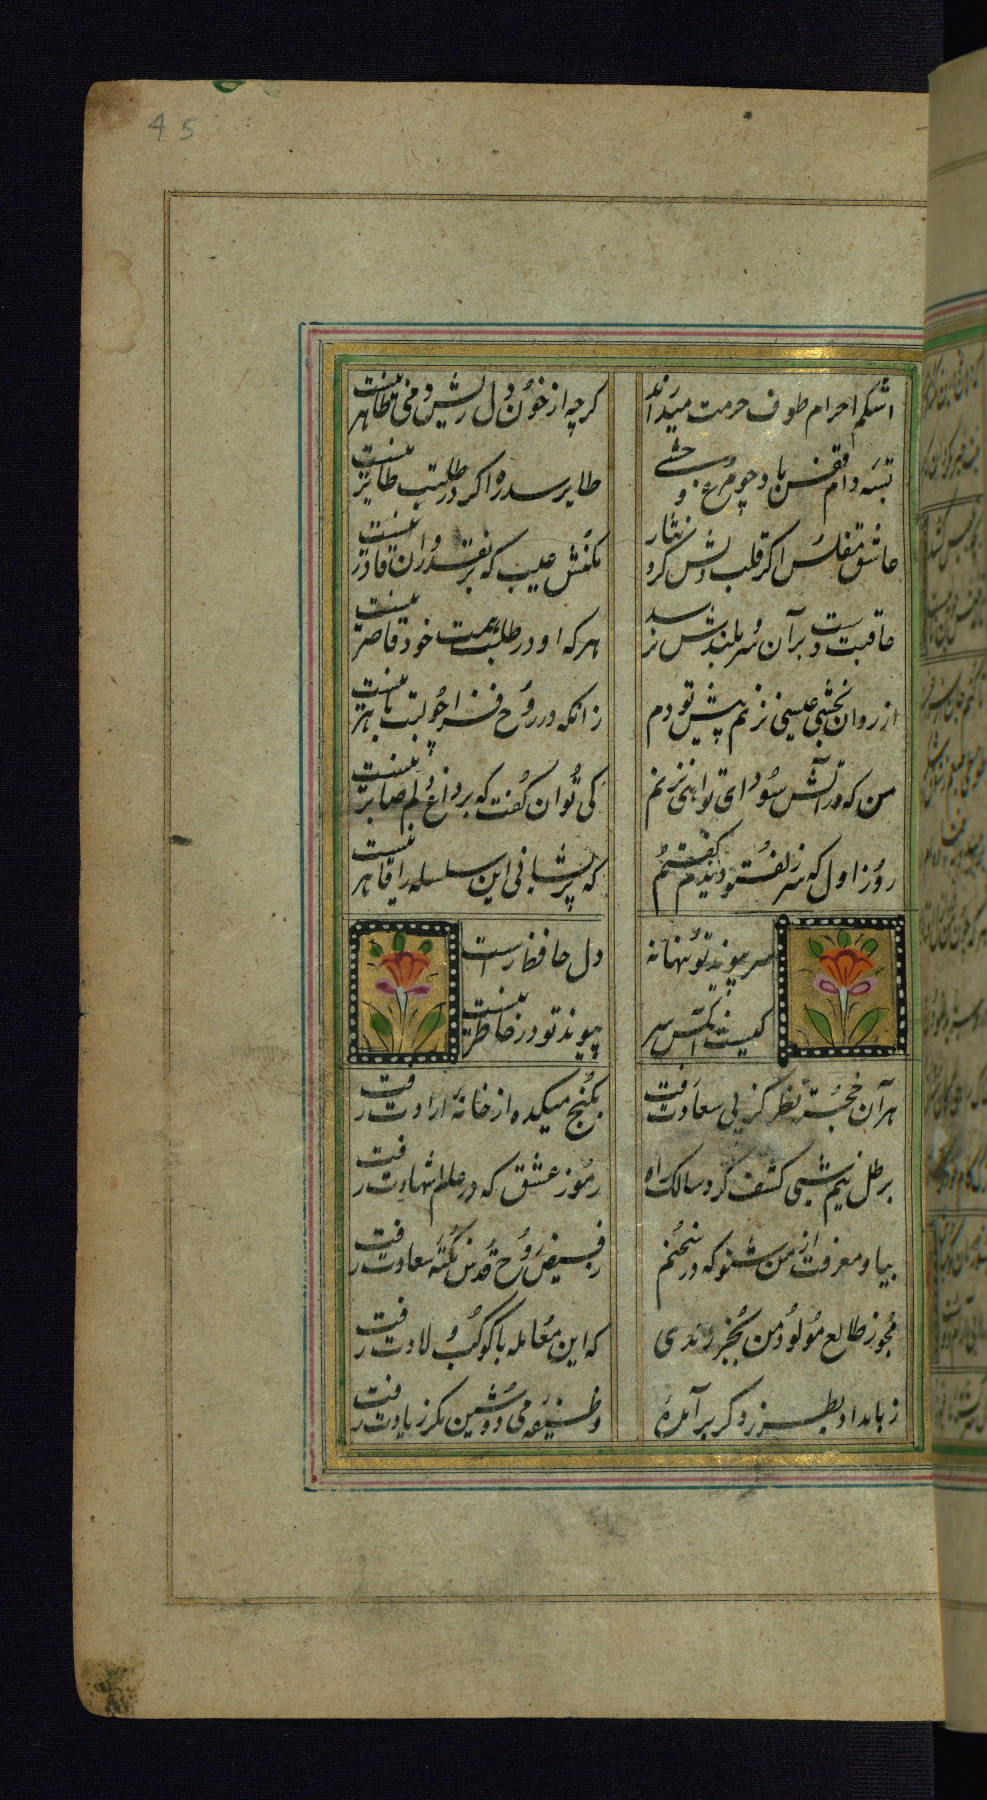 45
اشکم احرام طوف حرمت میبندد
کرچه از خون دل ریش دمی طاهر نیست
بسته دام قفس باد چو مرغ وحشی
طایر سدره اکر در طلبت طایر نیست
عاشق مفلس اکر قلب دلش کرد نثار
مکنش عیب که بر نقد روان قادر نیست
عاقبت دست بر آن سرو بلندش برسد
هر که او در طلبت همت خود قاصر نیست
از روان بخشی عیسی نزنم پیش تو دم
زانکه در روح فزایی چو لبت ماهر نیست
من که در آتش سودای تو آهی نزنم
کی توان کفت که بر داغ دلم صابر نیست
روز اول که سر زلف تو دیدم کفتم
که پریشانی این سلسله را آخر نیست
سر پیوند تو تنها نه
دل حافظ راست
کیست آنکش سر
پیوند تو در خاطر نیست
هر آن خجسته نظر کز پی سعادت رفت
بکنج میکده از خانه ارادت رفت
برطل نیم شبی کشف کرد سالک راه
رموز عشق که در عالم شهادت رفت
بیا و معرفت از من شنو که در سخنم
ز فیض روح قدس نکته سعادت رفت
مجوز طالع مولود من بجز رندی
که این معامله با کوکب ولادت رفت
ز بامداد بطرز دکر برآمده
وظیفه می دوشین مکر زیادت رفت